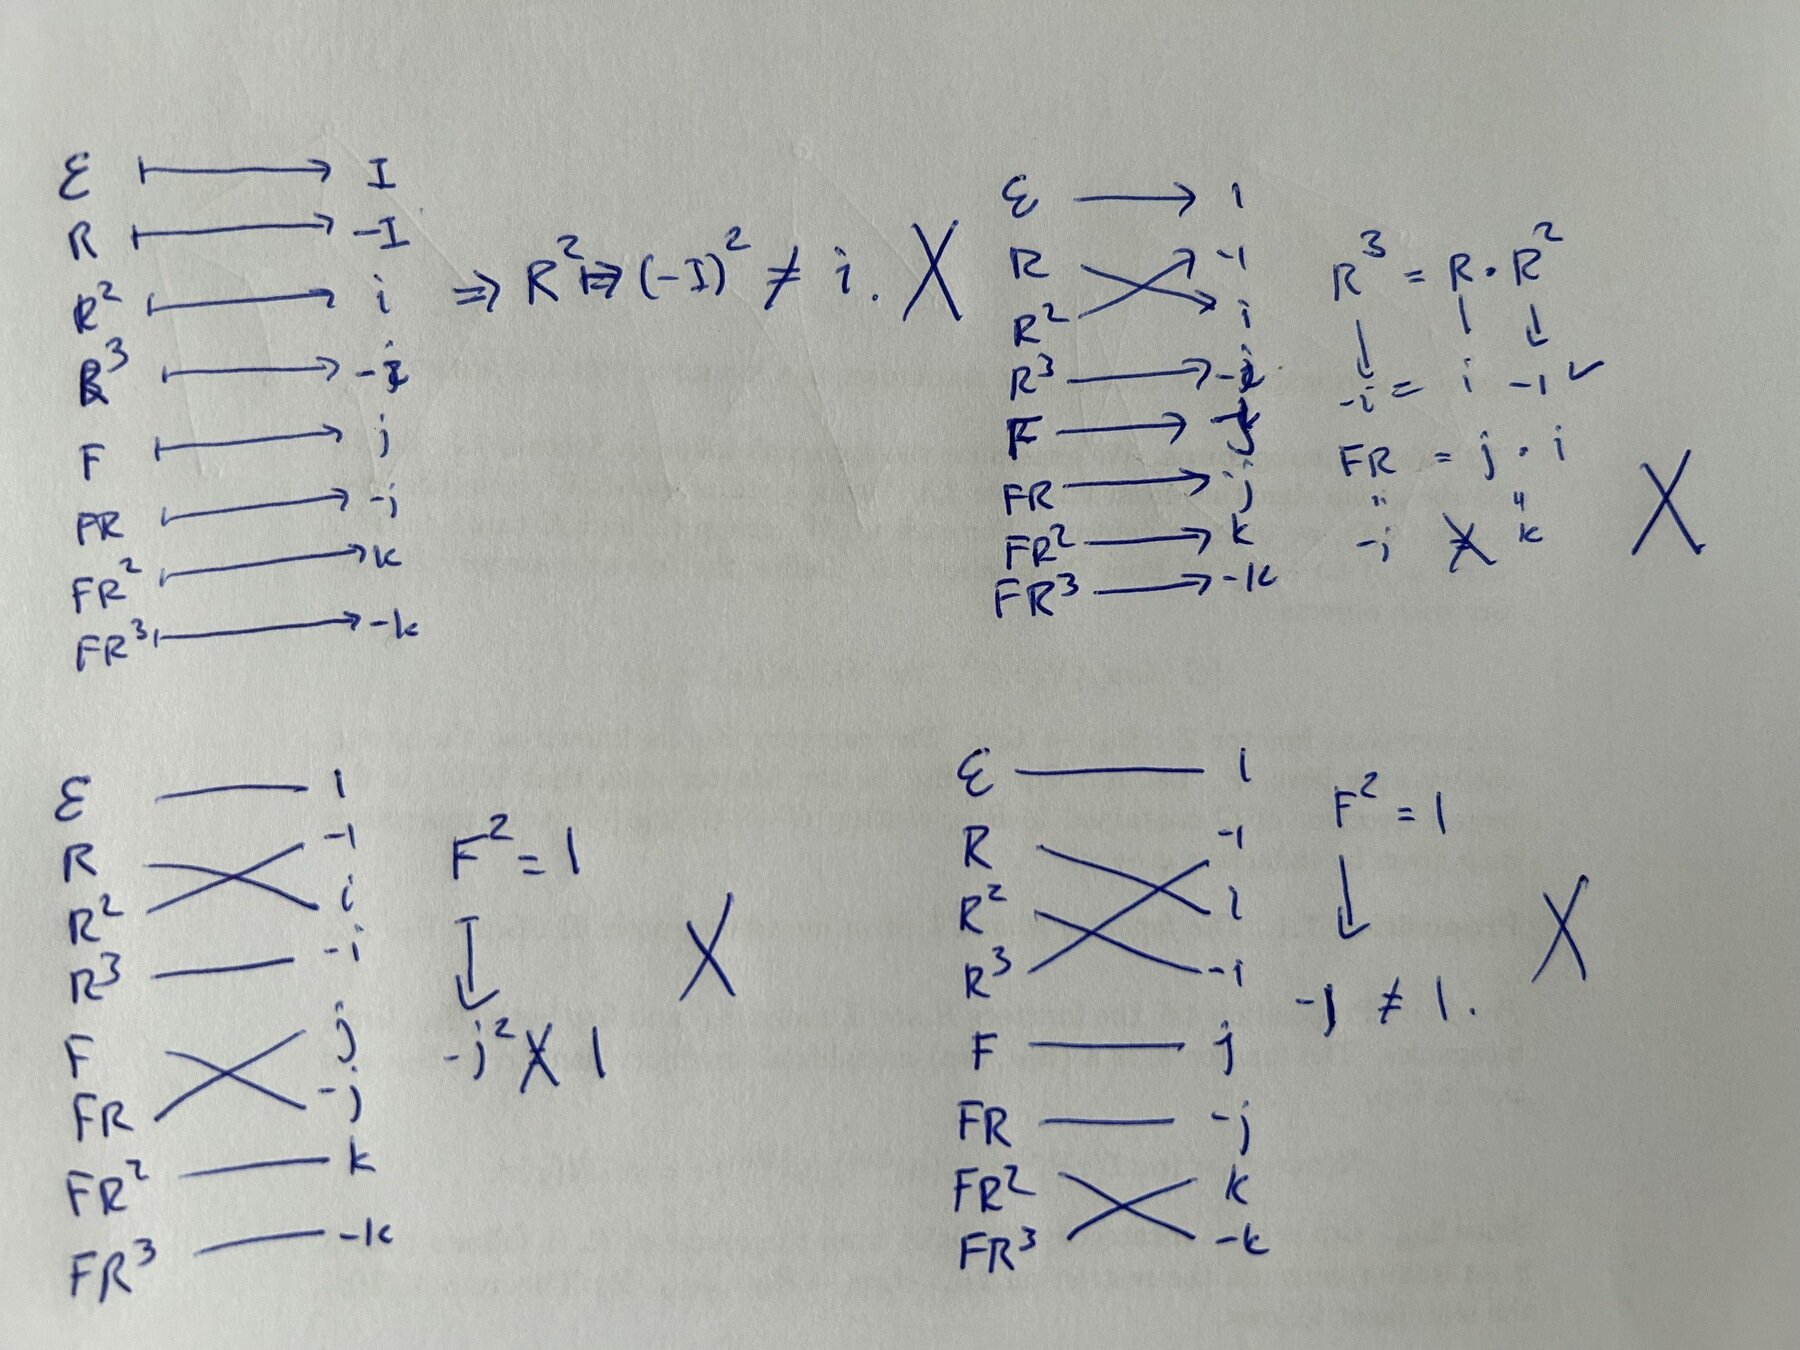 ε ↦ I
R ↦ -I
R² ↦ i ⇒ R² ↦ (-I)² ≠ i. X
R³ ↦ -i
F ↦ j
FR ↦ -j
FR² ↦ k
FR³ ↦ -k
ε → 1
R -1
R² i
R³ → -i
F →
FR → j
FR² → k
FR³ → -k
R³ = R · R²
↓ | ↓
-i = i -1 ✓
FR = j · i
" "
-j ≠ k
X
ε 1
R -1
R² i
R³ -i
F j
FR -j
FR² k
FR³ -k
F² = 1
↧
-j² ≠ 1
X
ε 1
R -1
R² i
R³ -i
F j
FR -j
FR² k
FR³ -k
F² = 1
↓
-1 ≠ 1.
X